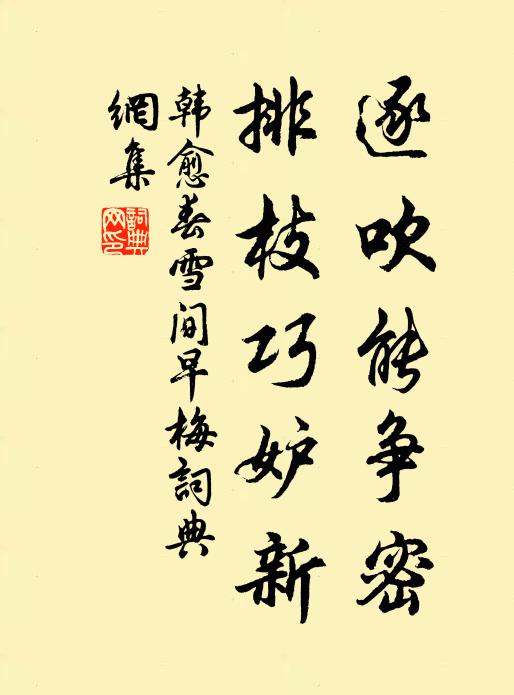 逐吹能争密
排枝巧妒新
韩愈春雪间早梅詞典
網集
詞典
网印